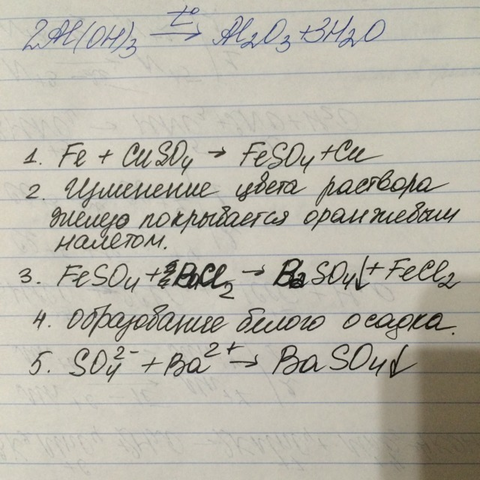 2Al(OH)₃ t° → Al₂O₃ + 3H₂O
1. Fe + CuSO₄ → FeSO₄ + Cu
2. Изменение цвета раствора
железо покрывается оранжевым
налётом.
3. FeSO₄ + BaCl₂ → BaSO₄↓ + FeCl₂
4. Образование белого осадка.
5. SO₄²⁻ + Ba²⁺ → BaSO₄↓